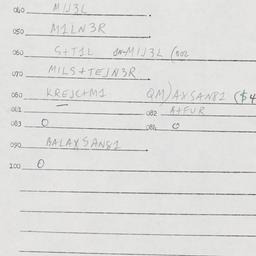 040 MIJ3L
050 M1LN3R
060 S+T1L MIJ3L (002
070 MILS+TEJN3R
080 KREJC+M1 QM)AXSAN82 ($4
081 082 A+FUR
083 0 084 0
090 BALAXSAN81
100 0